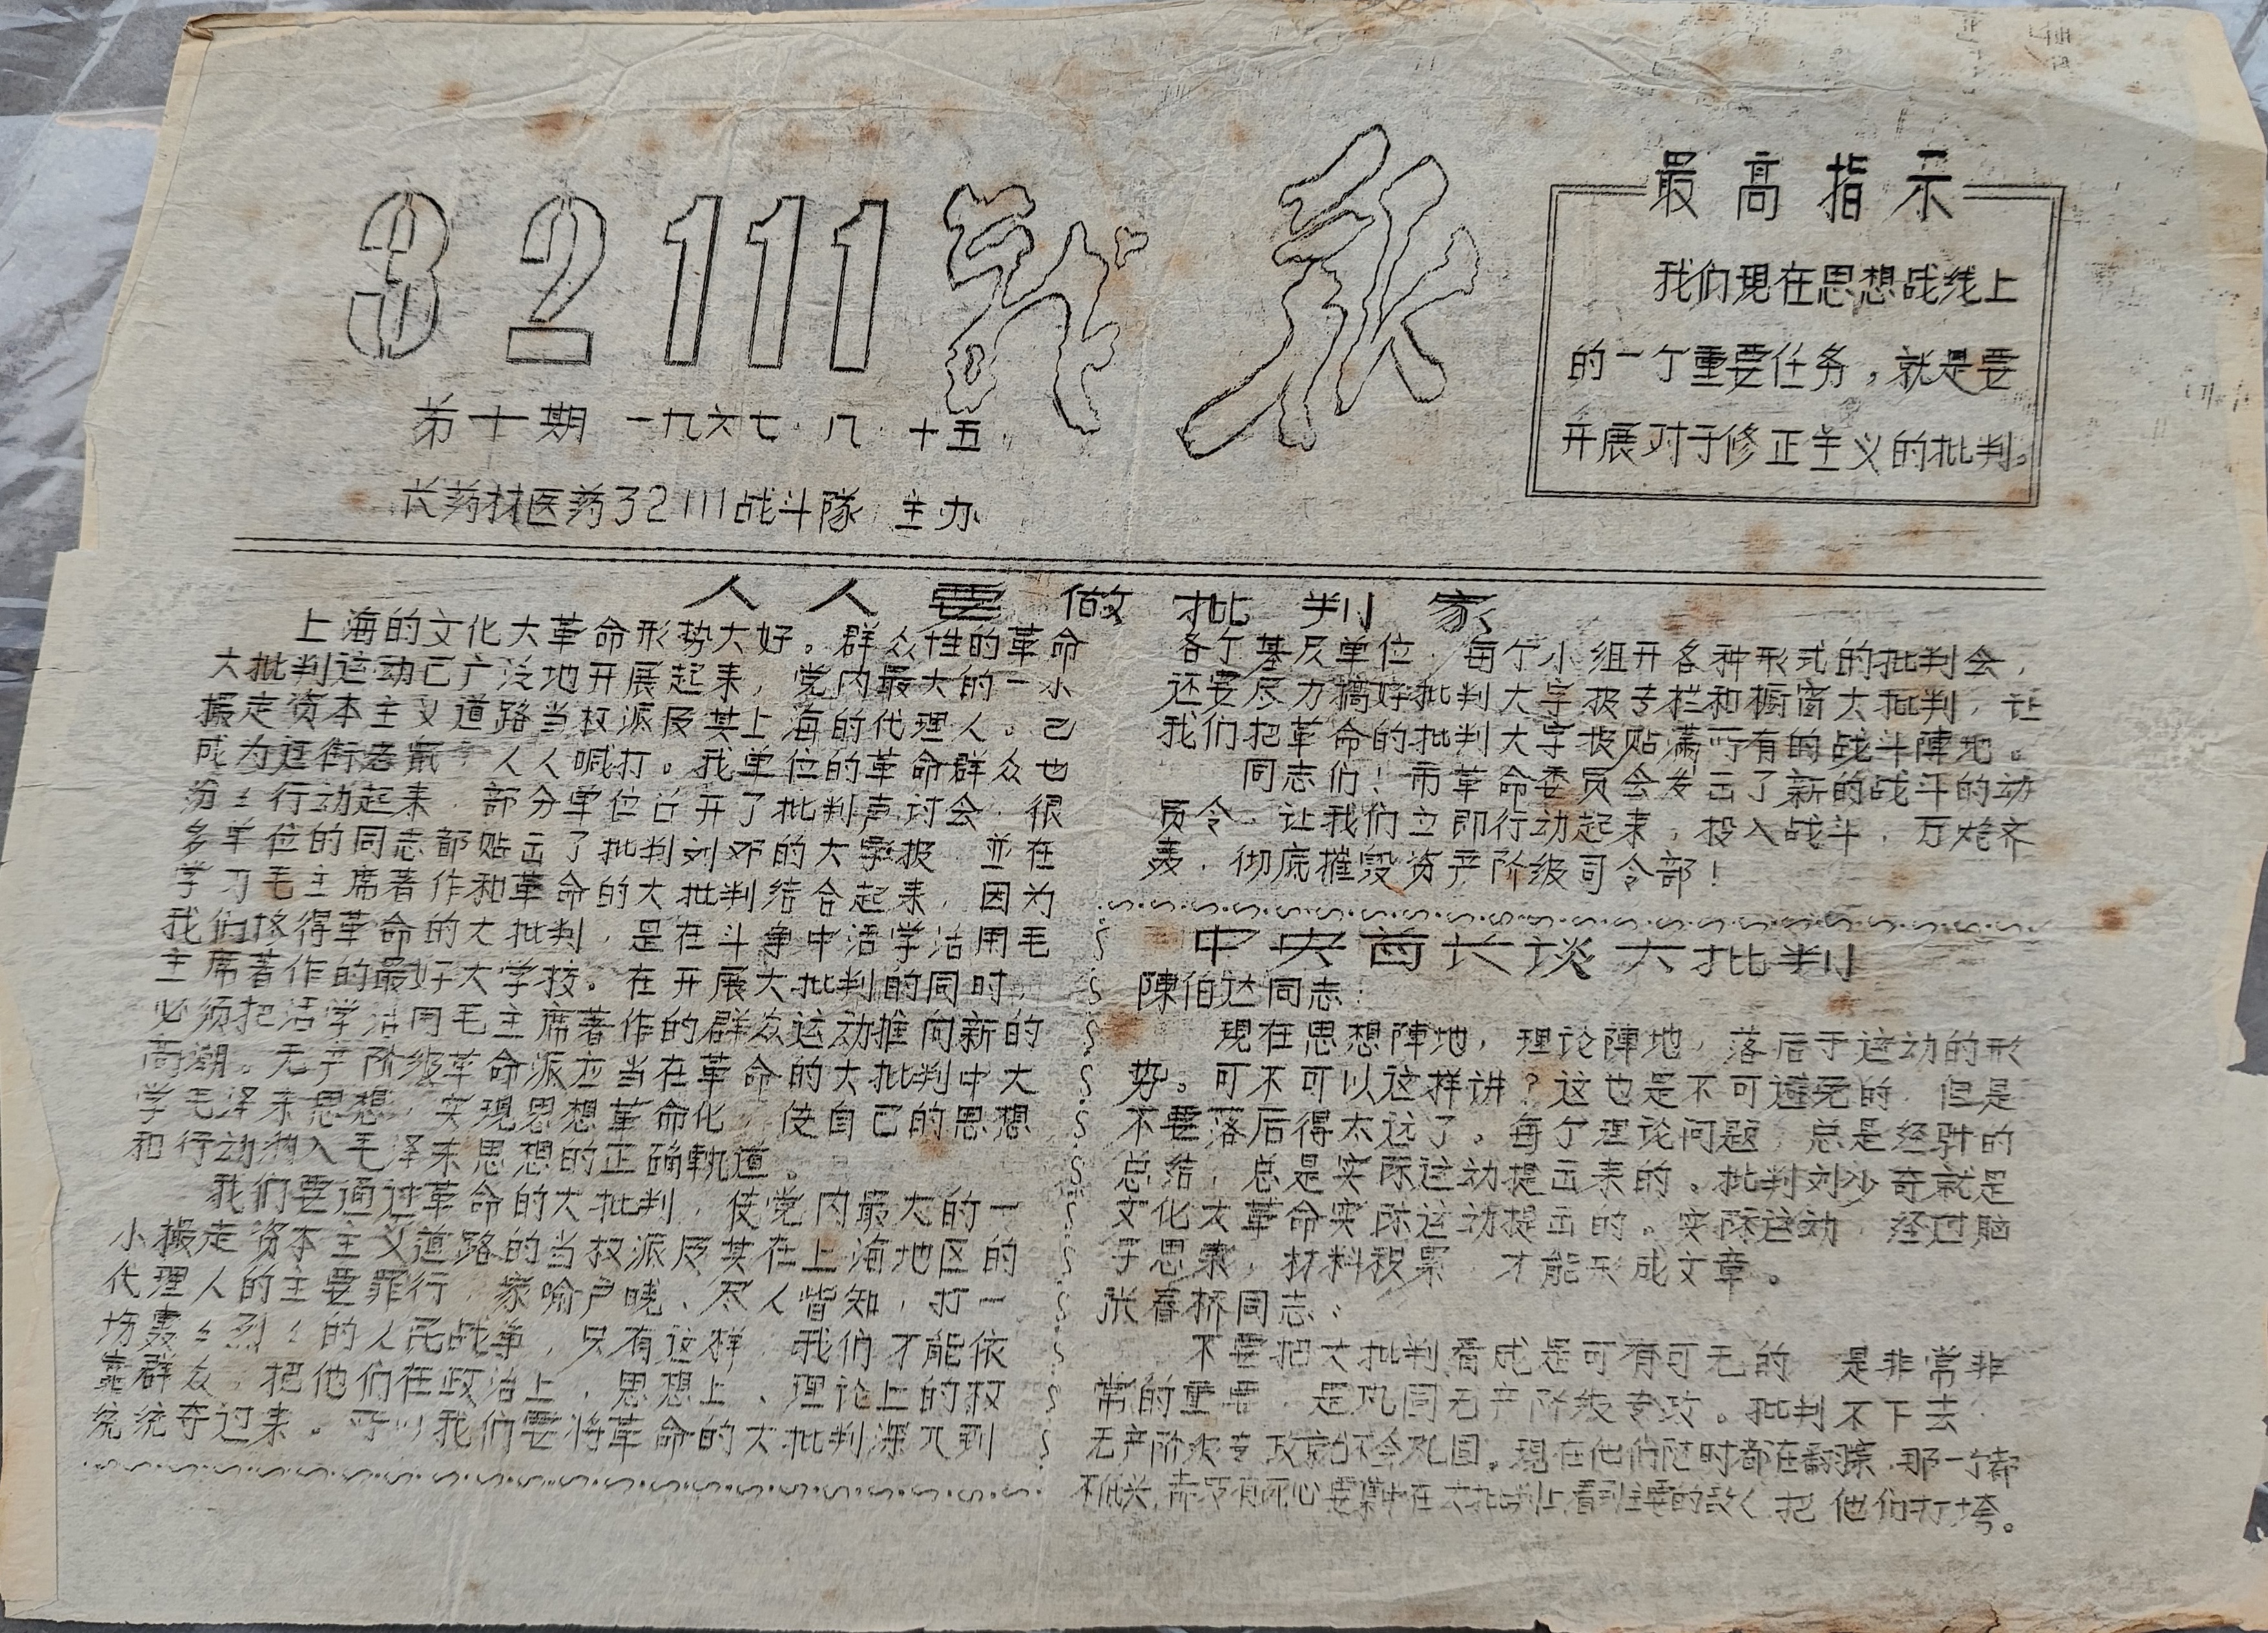 32111战报
最高指示
我们现在思想战线上
的一个重要任务，就是要
开展对于修正主义的批判。
第十期 一九六七.八.十五
长药材医药32111战斗隊 主办
人人要做批判家
上海的文化大革命形势大好。群众性的革命
大批判运动已广泛地开展起来，党内最大的一小
撮走资本主义道路当权派及其上海的代理人。已
成为过街老鼠 人人喊打。我单位的革命群众也
纷〻行动起来 部分单位召开了批判声讨会 很
多单位的同志都贴出了批判刘邓的大字报 並在
学习毛主席著作和革命的大批判结合起来 因为
我们懂得革命的大批判，是在斗争中活学活用毛
主席著作的最好大学校。在开展大批判的同时，
必须把活学活用毛主席著作的群众运动推向新的
高潮。无产阶级革命派应当在革命的大批判中大
学毛泽东思想，实现思想革命化 使自己的思想
和行动纳入毛泽东思想的正确軌道。
我们要通过革命的大批判，使党内最大的一
小撮走资本主义道路的当权派及其在上海地区的
代理人的主要罪行，家喻户晓、尽人皆知，打一
场轰〻烈〻的人民战争，只有这样 我们才能依
靠群众，把他们在政治上，思想上、理论上的权
统统夺过来。所以我们要将革命的大批判深入到
各个基层单位 每个小组开各种形式的批判会，
还要尽力搞好批判大字报专栏和橱窗大批判，让
我们把革命的批判大字报贴满所有的战斗陣地。
同志们！市革命委员会发出了新的战斗的动
员令。让我们立即行动起来，投入战斗，万炮齐
轰，彻底摧毁资产阶级司令部！
中央首长谈大批判
陳伯达同志：
现在思想陣地，理论陣地，落后于运动的形
势。可不可以这样讲？这也是不可避免的 但是
不要落后得太远了。每个理论问题 总是经验的
总结，总是实际运动提出来的。批判刘少奇就是
文化大革命实际运动提出的。实际运动 经过脑
子思索，材料积累 才能形成文章。
张春桥同志：
不要把大批判看成是可有可无的 是非常非
常的重要 是巩固无产阶级专政。批判不下去
无产阶级专政就不会巩固。现在他们随时都在翻案，那一个都
不低头，要集中在大批判上，看到主要的敌人 把他们打垮。